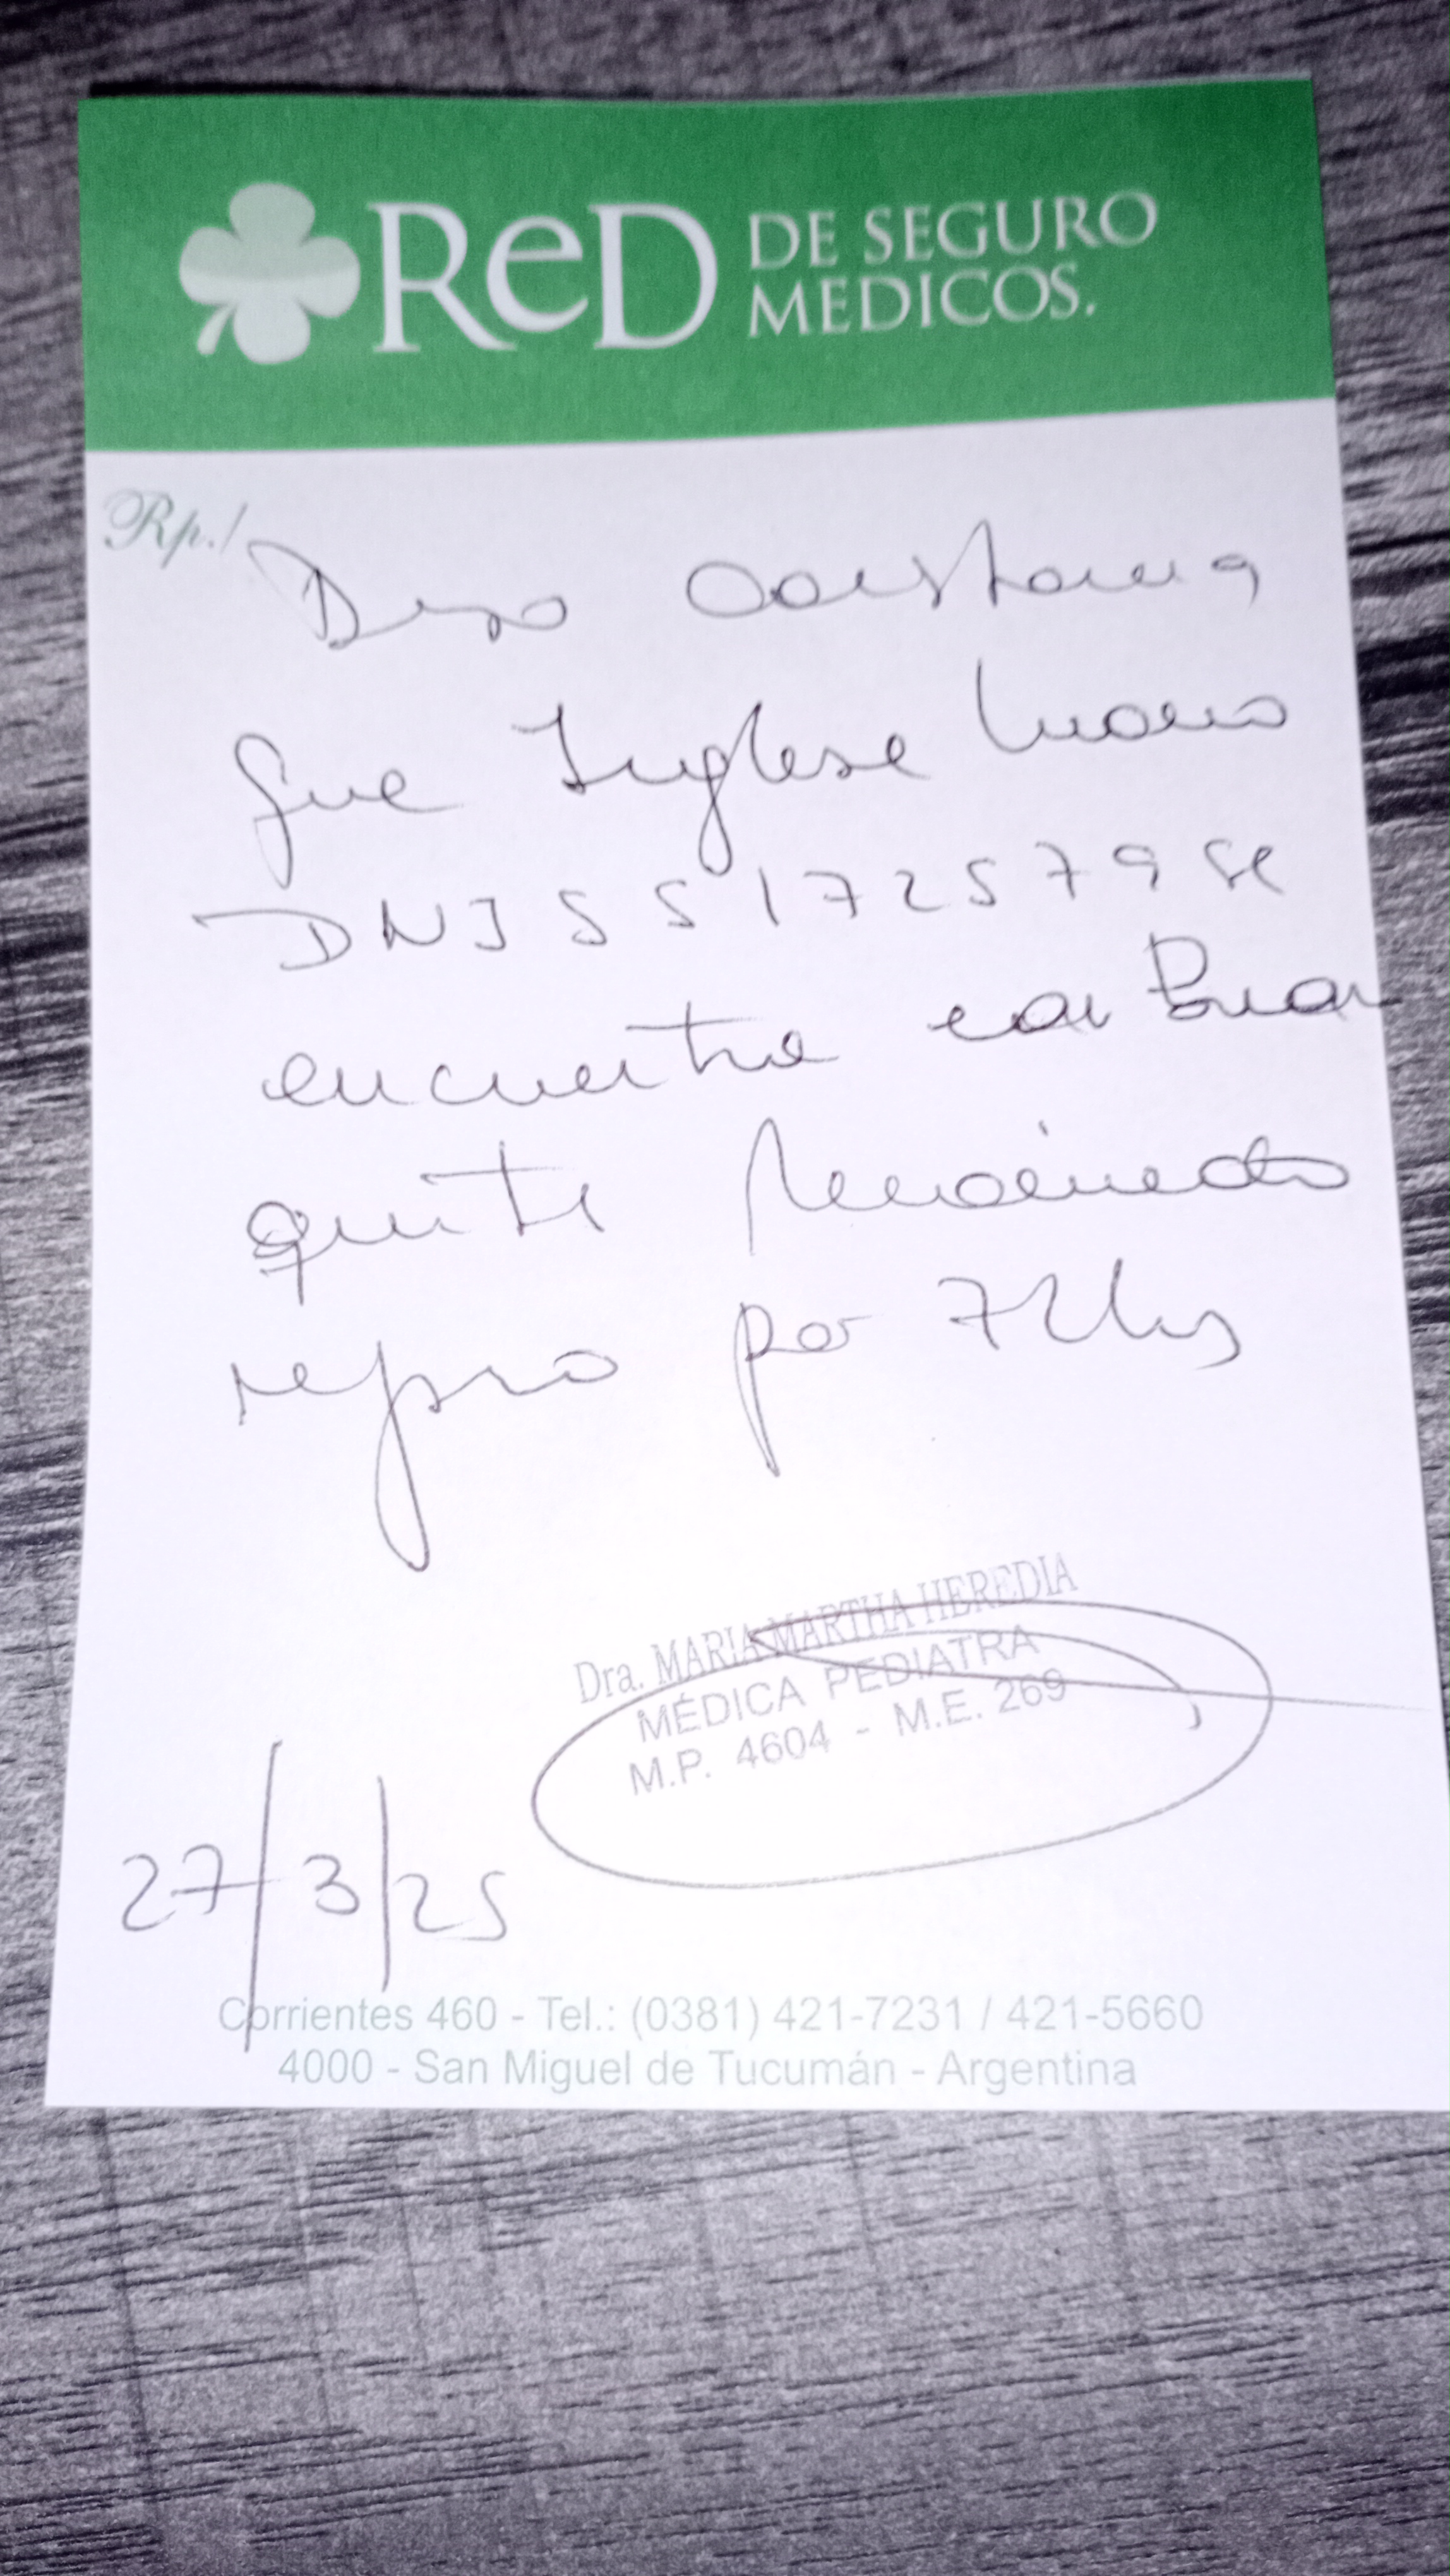 ReD DE SEGURO
MEDICOS.
Rp./
Dejo constancia
que Inglese
DNI 55172579 se
encuentra con Bron
quitis
reposo por 72hs
Dra. MARIA MARTHA HEREDIA
MÉDICA PEDIATRA
M.P. 4604 - M.E. 269
27/3/25
Corrientes 460 - Tel.: (0381) 421-7231 / 421-5660
4000 - San Miguel de Tucumán - Argentina